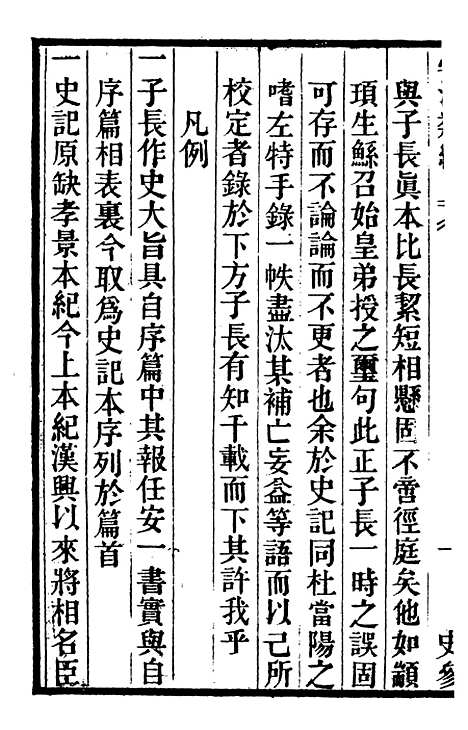 與子長眞本比長絜短相懸固不啻徑庭矣他如顓
頊生鯀召始皇弟授之璽句此正子長一時之誤固
可存而不論論而不更者也余於史記同杜當陽之
嗜左特手錄一帙盡汰某補亡妄益等語而以己所
校定者錄於下方子長有知千載而下其許我乎
凡例
一子長作史大旨具自序篇中其報任安一書實與自
序篇相表裏今取爲史記本序列於篇首
一史記原缺孝景本紀今上本紀漢興以來將相名臣